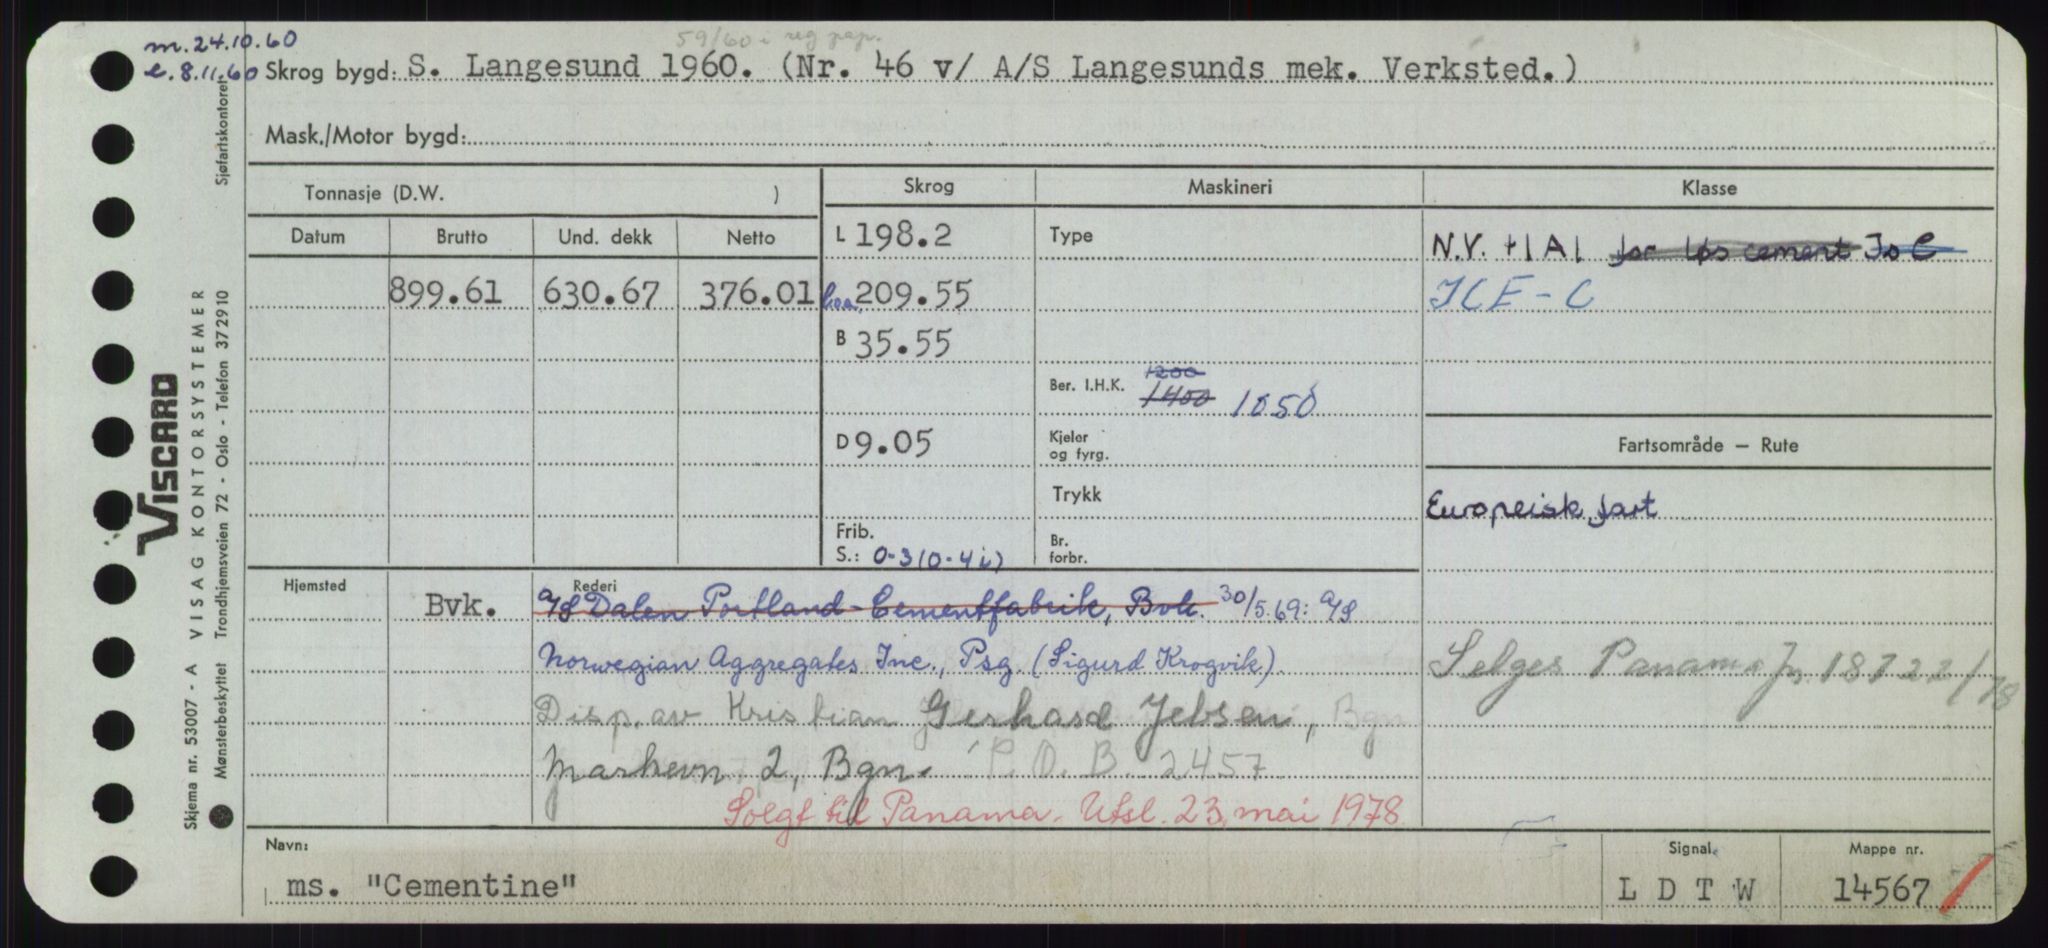 m. 24.10.60
e. 8.11.60
59/60 i reg pap.
Skrog bygd: S. Langesund 1960. (Nr. 46 v/ A/S Langesunds mek. Verksted.)
Mask./Motor bygd:
Tonnasje (D.W. )
Skrog Maskineri Klasse
Datum Brutto Und. dekk Netto
L 198.2 Type N.V. +1A1 for løs cement Is C
899.61 630.67 376.01 Loa 209.55 ICE-C
B 35.55
Ber. I.H.K. 1200 1400 1050
D 9.05 Kjeler og fyrg.
Fartsområde — Rute
Trykk
Europeisk fart
Frib. S.: 0-3 (0-4 i) Br. forbr.
Hjemsted Rederi
Bvk. A/S Dalen Portland-Cementfabrik, Bvk. 30/5.69: A/S
Norwegian Aggregates Inc., Psg. (Sigurd Krogvik)
Selges Panama
Disp. av Kristian Gerhard Jebsen, Bgn
2, Bgn. P.O.B. 2457
Solgt til Panama. Utsl. 23. mai 1978
Navn: Signal. Mappe nr.
ms. "Cementine" L D T W 14567
VISCARD
Skjema nr. 53007 - A VISAG KONTORSYSTEMER
Mønsterbeskyttet Trondhjemsveien 72 - Oslo - Telefon 372910
Sjøfartskontoret